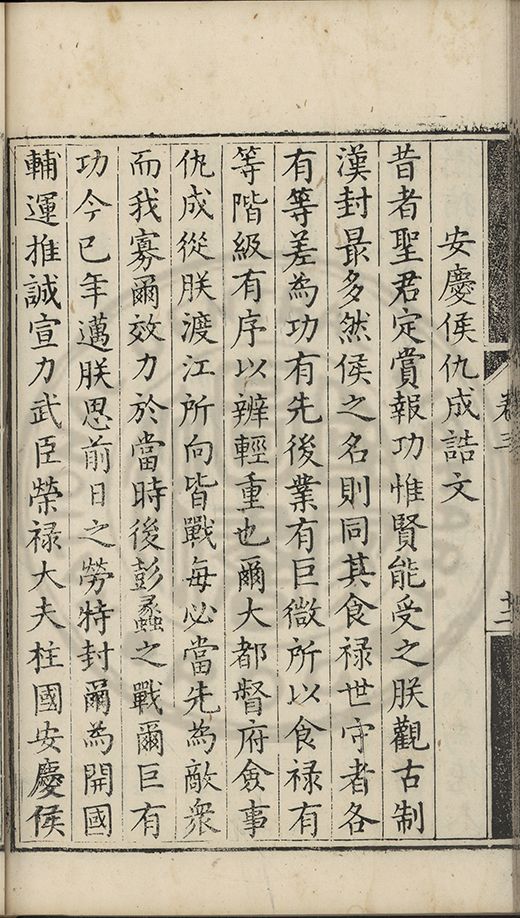 安慶侯仇成誥文
昔者聖君定賞報功惟賢能受之朕觀古制
漢封最多然侯之名則同其食禄世守者各
有等差為功有先後業有巨微所以食禄有
等階級有序以辨輕重也爾大都督府僉事
仇成從朕渡江所向皆戰每必當先為敵衆
而我寡爾效力於當時後彭蠡之戰爾巨有
功今已年邁朕思前日之勞特封爾為開國
輔運推誠宣力武臣榮禄大夫柱國安慶侯
卷三